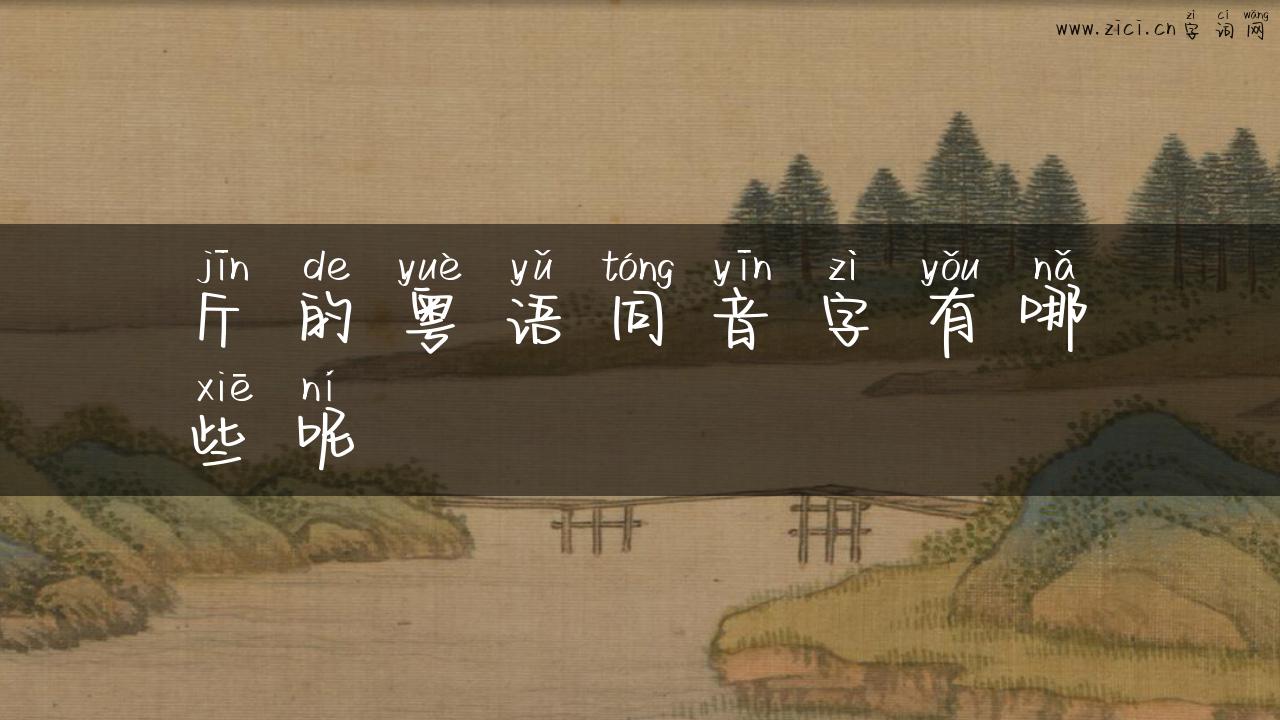 zì cí wǎng
www.zici.cn 字词网
jīn de yuè yǔ tóng yīn zì yǒu nǎ
斤的粤语同音字有哪
xiē ní
些呢